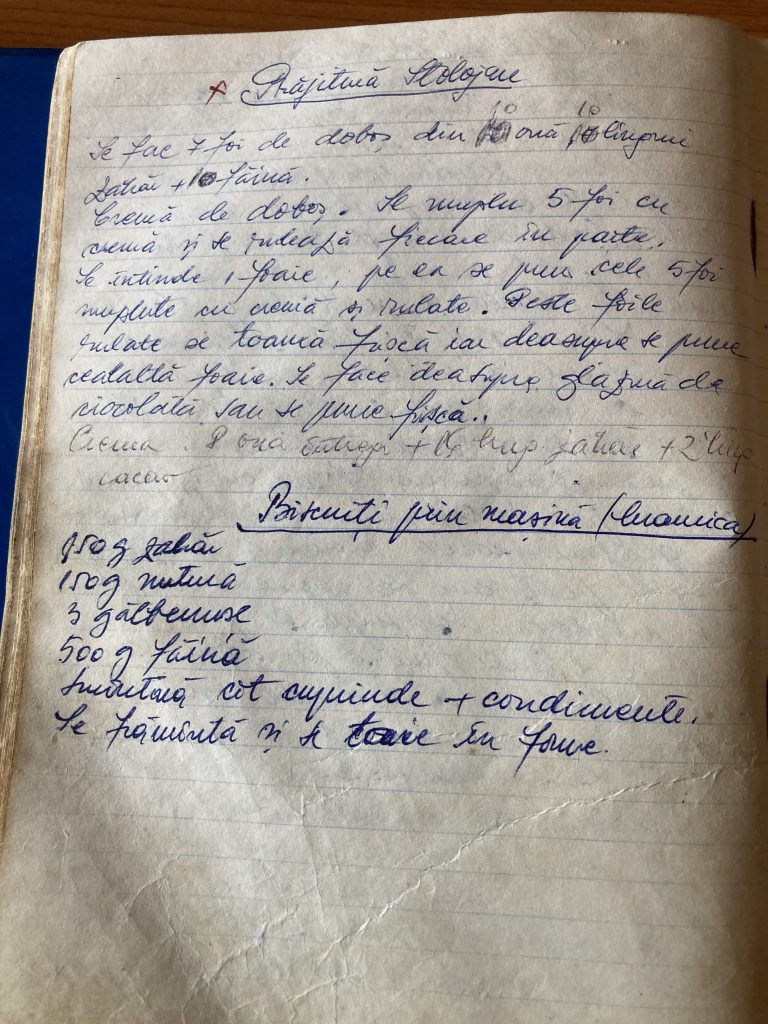 x Prăjitură Stolojan
Se fac 7 foi de doboș din 10 ouă 10 linguri
zahăr + 10 făină.
Cremă de doboș. Se umplu 5 foi cu
cremă și se rulează fiecare în parte.
Se întinde 1 foaie, pe ea se pun cele 5 foi
umplute cu cremă și rulate. Peste foile
rulate se toarnă frișcă iar deasupra se pune
cealaltă foaie. Se face deasupra glazură de
ciocolată sau se pune frișcă..
Crema 8 ouă întregi + 16 ling zahăr + 2 ling
cacao
Biscuiți prin mașină (Mamica)
150 g zahăr
150 g untură
3 gălbenușe
500 g făină
Smîntînă cît cuprinde + condimente.
Se frămîntă și se toaie în forme.